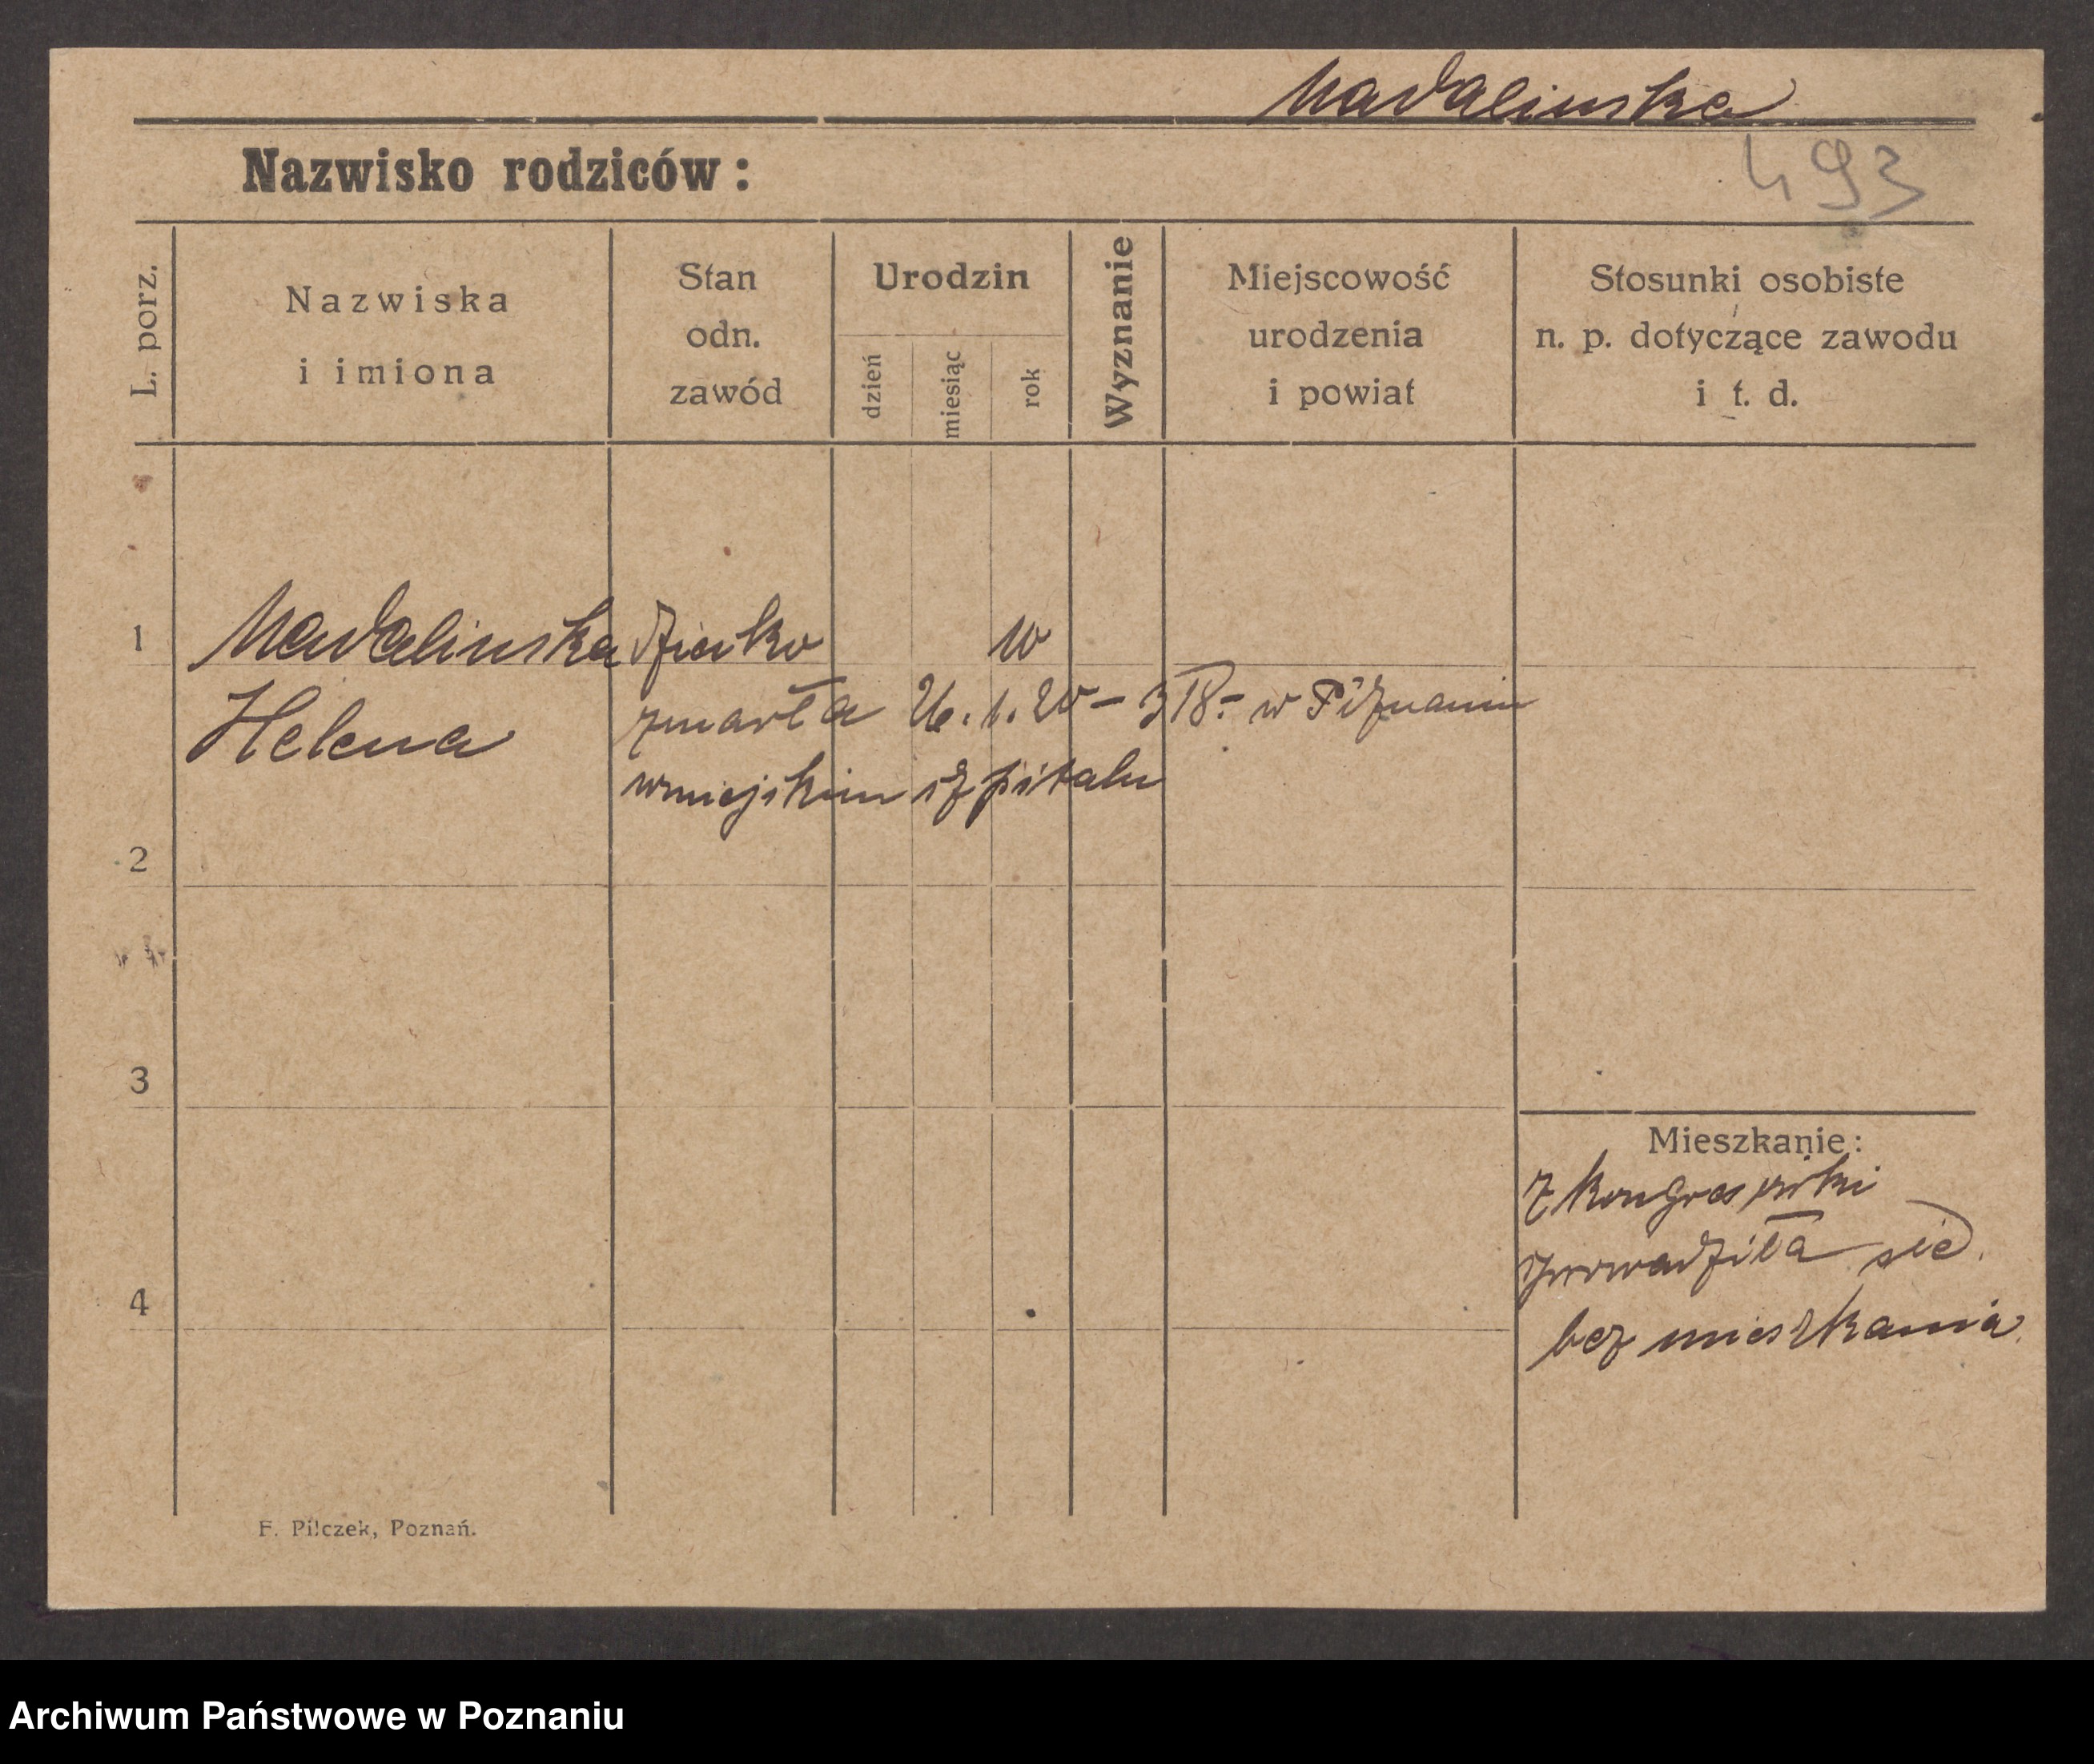 Madalinska
493
Nazwisko rodziców:
L. porz.
Nazwiska
i imiona
Stan
odn.
zawód
Urodzin
dzień
miesiąc
rok
Wyznanie
Miejscowość
urodzenia
i powiat
Stosunki osobiste
n. p. dotyczące zawodu
i t. d.
1 Madalinska dziecko 10
Helena zmarła 26. 1. 20 – w Poznaniu
w miejskim szpitalu
2
3
Mieszkanie:
z kongresówki
sprowadziła się.
4
bez mieszkania
F. Pilczek, Poznań.
Archiwum Państwowe w Poznaniu